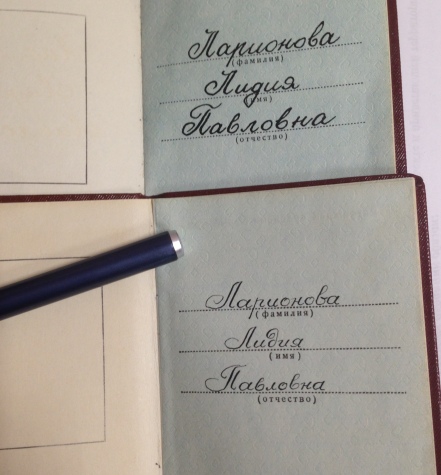 Ларионова
(фамилия)
Лидия
(имя)
Павловна
(отчество)
Ларионова
(фамилия)
Лидия
(имя)
Павловна
(отчество)